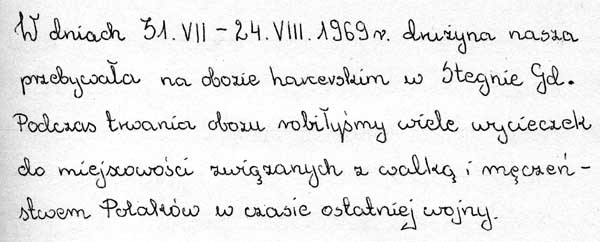 W dniach 31.VII - 24.VIII.1969r. drużyna nasza
przebywała na obozie harcerskim w Stegnie Gd.
Podczas trwania obozu robiłyśmy wiele wycieczek
do miejscowości związanych z walką i męczeń-
stwem Polaków w czasie ostatniej wojny.